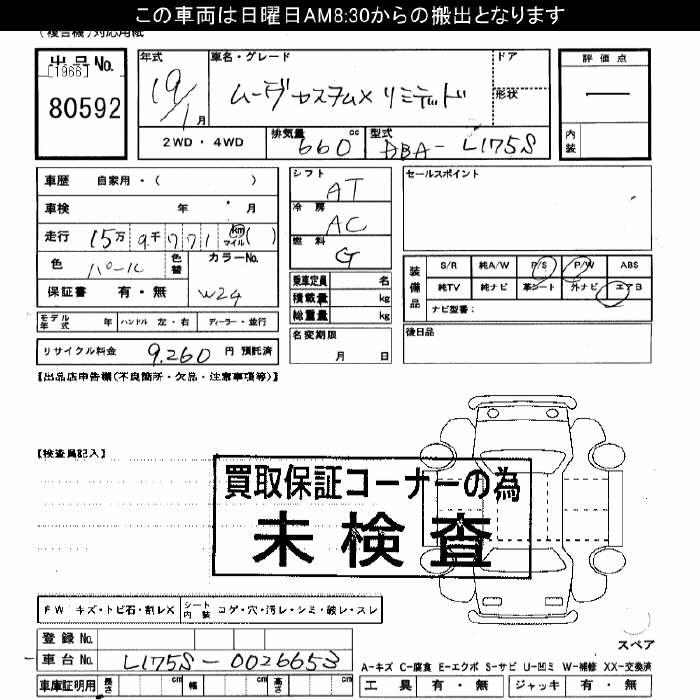 この車両は日曜日AM8:30からの搬出となります
(複合機)対応用紙
出品No.
[1966]
80592
年式
19/1月
車名・グレード
ムーヴ カスタムX リミテッド
ドア
形状
2WD・4WD
排気量 660 cc
型式 DBA-L175S
評価点
—
内装
車歴 自家用・( )
車検 年 月
走行 15万 9千 7 7 1 km マイル ( )
色 パール
色替
カラーNo. W24
保証書 有・無
シフト AT
冷房 AC
燃料 G
乗車定員 名
積載量 kg
総重量 kg
名変期限
月 日
セールスポイント
装備品
S/R 純A/W P/S P/W ABS
純TV 純ナビ 革シート 外ナビ エアB
ナビ型番:
後日品
モデル年式 年 ハンドル 左・右 ディーラー・並行
リサイクル料金 9,260 円 預託済
【出品店申告欄(不良箇所・欠品・注意事項等)】
【検査員記入】
買取保証コーナーの為
未検査
FW キズ・トビ石・割レX シート内装 コゲ・穴・汚レ・シミ・破レ・スレ
登録No.
車台No. L175S-0026653
車庫証明用 長さ cm 幅 cm 高さ cm
スペア
A-キズ C-腐食 E-エクボ S-サビ U-凹ミ W-補修 XX-交換済
工具 有・無 ジャッキ 有・無